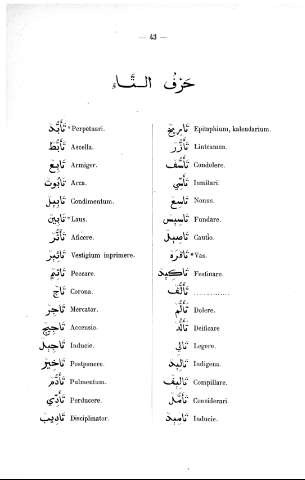 — 43 —
حَرْفُ التَّاءِ
تَأَبَّد * Perpetuari.
تَأَبَّط Ascella.
تَابِع Armiger.
تَابُوت Arca.
تَابِيل Condimentum.
تَابِين * Laus.
تَأَثَّر Aficere.
تَاثِير Vestigium inprimere.
تَاثِيم Peccare.
تَاج Corona.
تَاجِر Mercator.
تَاجِيج Accensio.
تَاجِيل Inducie.
تَاخِير Postponere.
تَأَدُّم Pulmentum.
تَأَدِّي Perducere.
تَادِيب Disciplinator.
تَارِيخ Epitaphium, kalendarium.
تَأَزَّر Linteamen.
تَأَسُّف Condolere.
تَأَسِّي Imitari.
تَاسِع Nonus.
تَاسِيس Fundare.
تَاصِيل Cautio.
تَافِرَة * Vas.
تَاكِيد Festinare.
تَأَلَّف ..............
تَأَلَّم Dolere.
تَأَلُّه Deificare
تَالِي Legere.
تَالِيد Indigena.
تَالِيف Compillare.
تَأَمَّل Considerari.
تَامِيد Inducie.